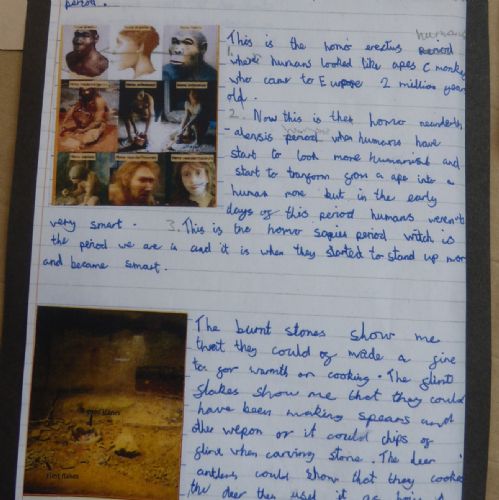 period.
humans
1. This is the homo erectus period
where humans looked like apes C monkey
who came to Europe 2 million years
old.
2. Now this is the homo neanderth
-alensis period when humans have
human
start to look more humanish and
start to tranform from a ape into a
human more but in the early
days of this period humans weren't
very smart. 3. This is the homo sapies period witch is
the period we are in and it is when they started to stand up more
and became smart.
The burnt stones show me
that they could of made a fire
for warmth or cooking. The flint
flakes show me that they could
have been making spears and
other wepon or it could chips of
flint when carving stone. The deer
antlers could show that they cooked
the deer then used it as
flint flakes